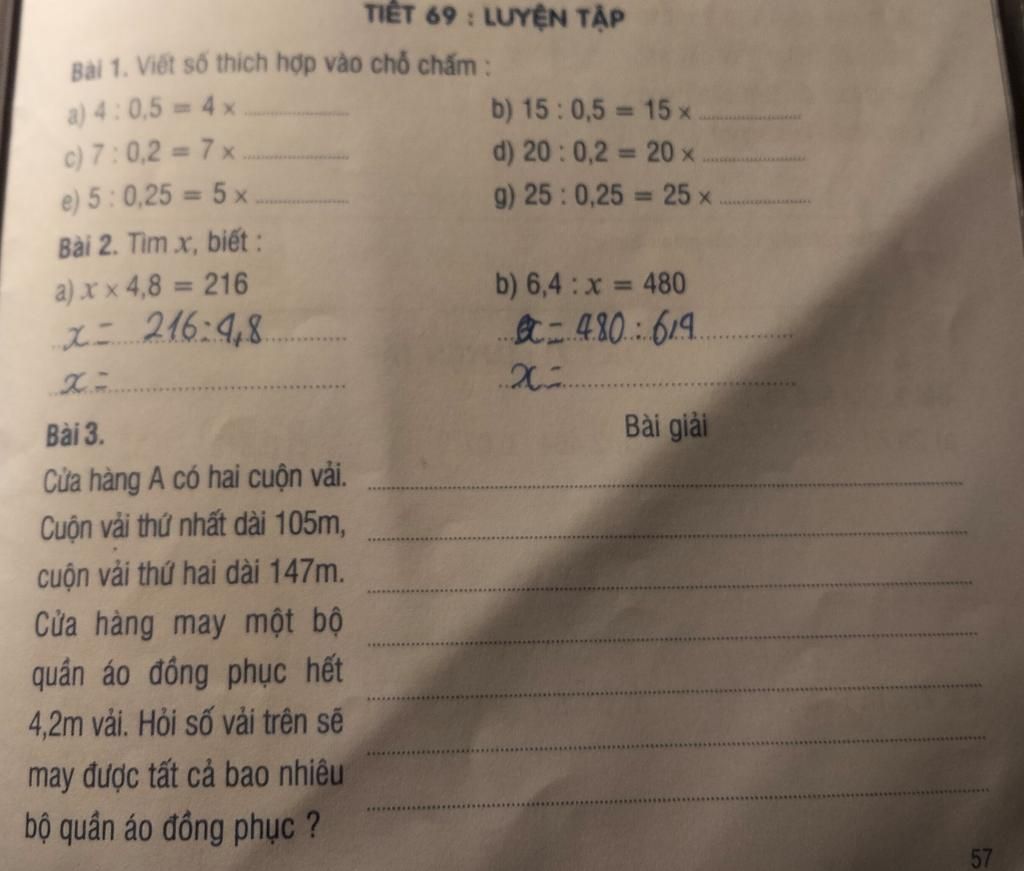 TIẾT 69 : LUYỆN TẬP
Bài 1. Viết số thích hợp vào chỗ chấm :
a) 4 : 0,5 = 4 × ..................
b) 15 : 0,5 = 15 × ..................
c) 7 : 0,2 = 7 × ..................
d) 20 : 0,2 = 20 × ..................
e) 5 : 0,25 = 5 × ..................
g) 25 : 0,25 = 25 × ..................
Bài 2. Tìm x, biết :
a) x × 4,8 = 216
b) 6,4 : x = 480
x = 216:4,8
x = 480 : 6,4
x =
x =
Bài 3.
Bài giải
Cửa hàng A có hai cuộn vải.
Cuộn vải thứ nhất dài 105m,
cuộn vải thứ hai dài 147m.
Cửa hàng may một bộ
quần áo đồng phục hết
4,2m vải. Hỏi số vải trên sẽ
may được tất cả bao nhiêu
bộ quần áo đồng phục ?
57